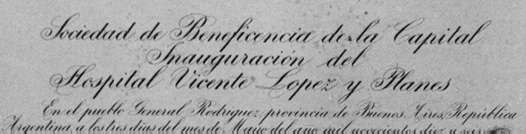 Sociedad de Beneficencia de la Capital
Inauguración del
Hospital Vicente Lopez y Planes
En el pueblo General Rodriguez, provincia de Buenos Aires, República
Argentina, a los tres dias del mes de Mayo del año mil novecientos diez